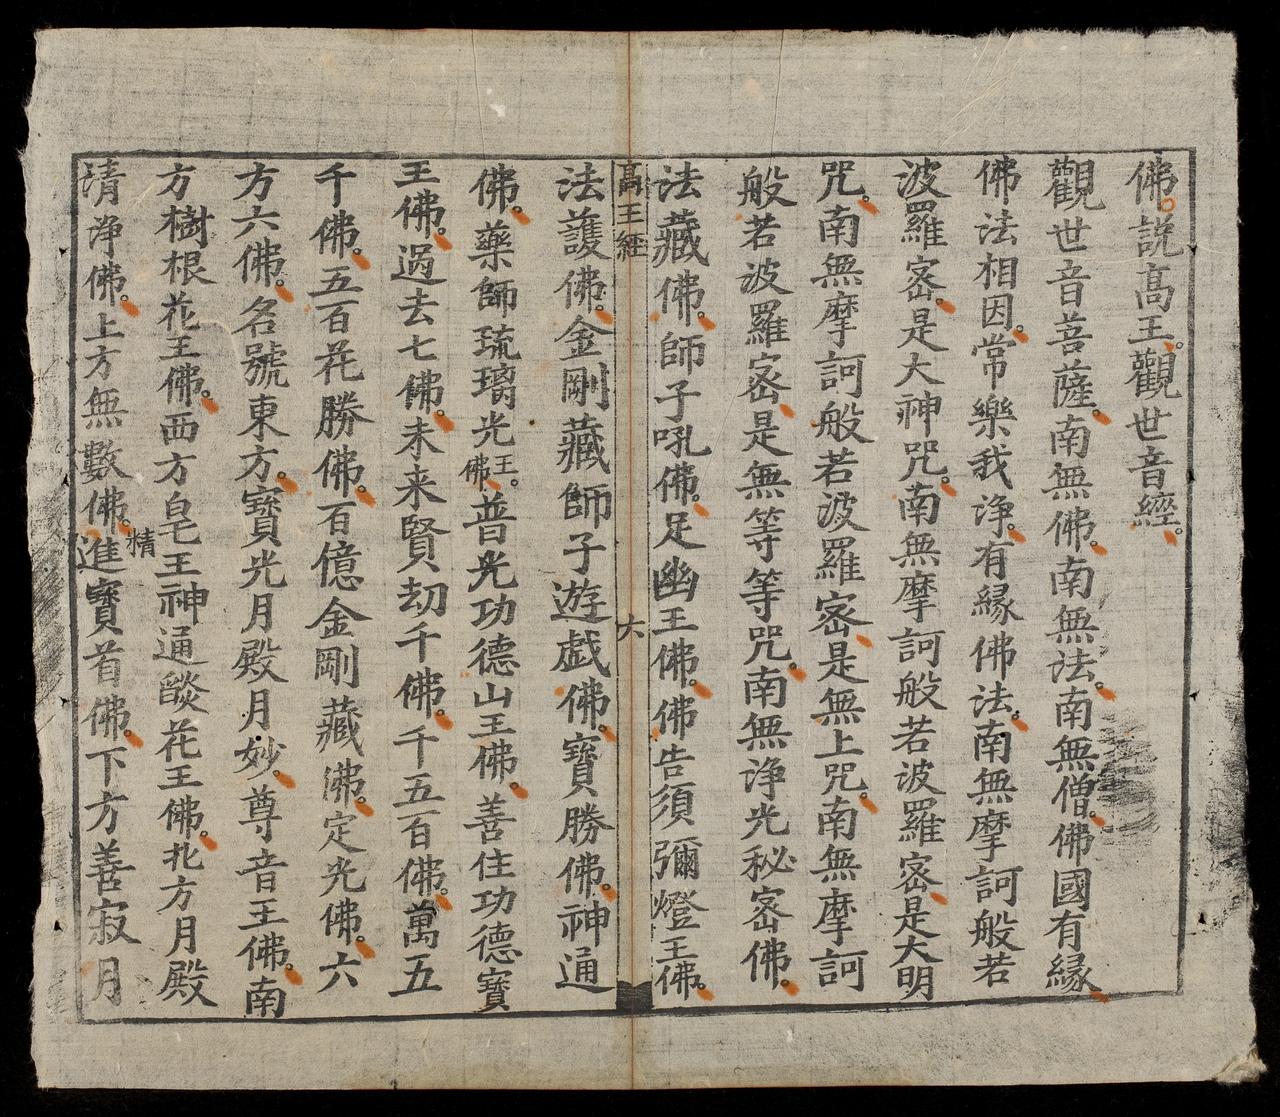 佛。說高王。觀世音經。
觀世音菩薩。南無佛。南無法。南無僧。佛國有緣
佛法相因。常樂我净。有緣佛法。南無摩訶般若
波羅宻。是大神咒。南無摩訶般若波羅宻。是大明
咒。南無摩訶般若波羅宻。是無上咒。南無摩訶
般若波羅宻。是無等等咒。南無淨光秘宻佛。
法藏佛。師子吼佛。足幽王佛。佛告須彌燈王佛。
高王經 六
法護佛。金剛藏師子遊戲佛。寶勝佛。神通
佛。藥師琉璃光王佛。普光功德山王佛。善住功德寶
王佛。過去七佛。未来賢劫千佛。千五百佛。萬五
千佛。五百花勝佛。百億金剛藏佛。定光佛。六
方六佛。名號東方。寶光月殿月妙。尊音王佛。南
方樹根花王佛。西方皂王神通燄花王佛。北方月殿
清淨佛。上方無數佛。精進寶首佛。下方善寂月